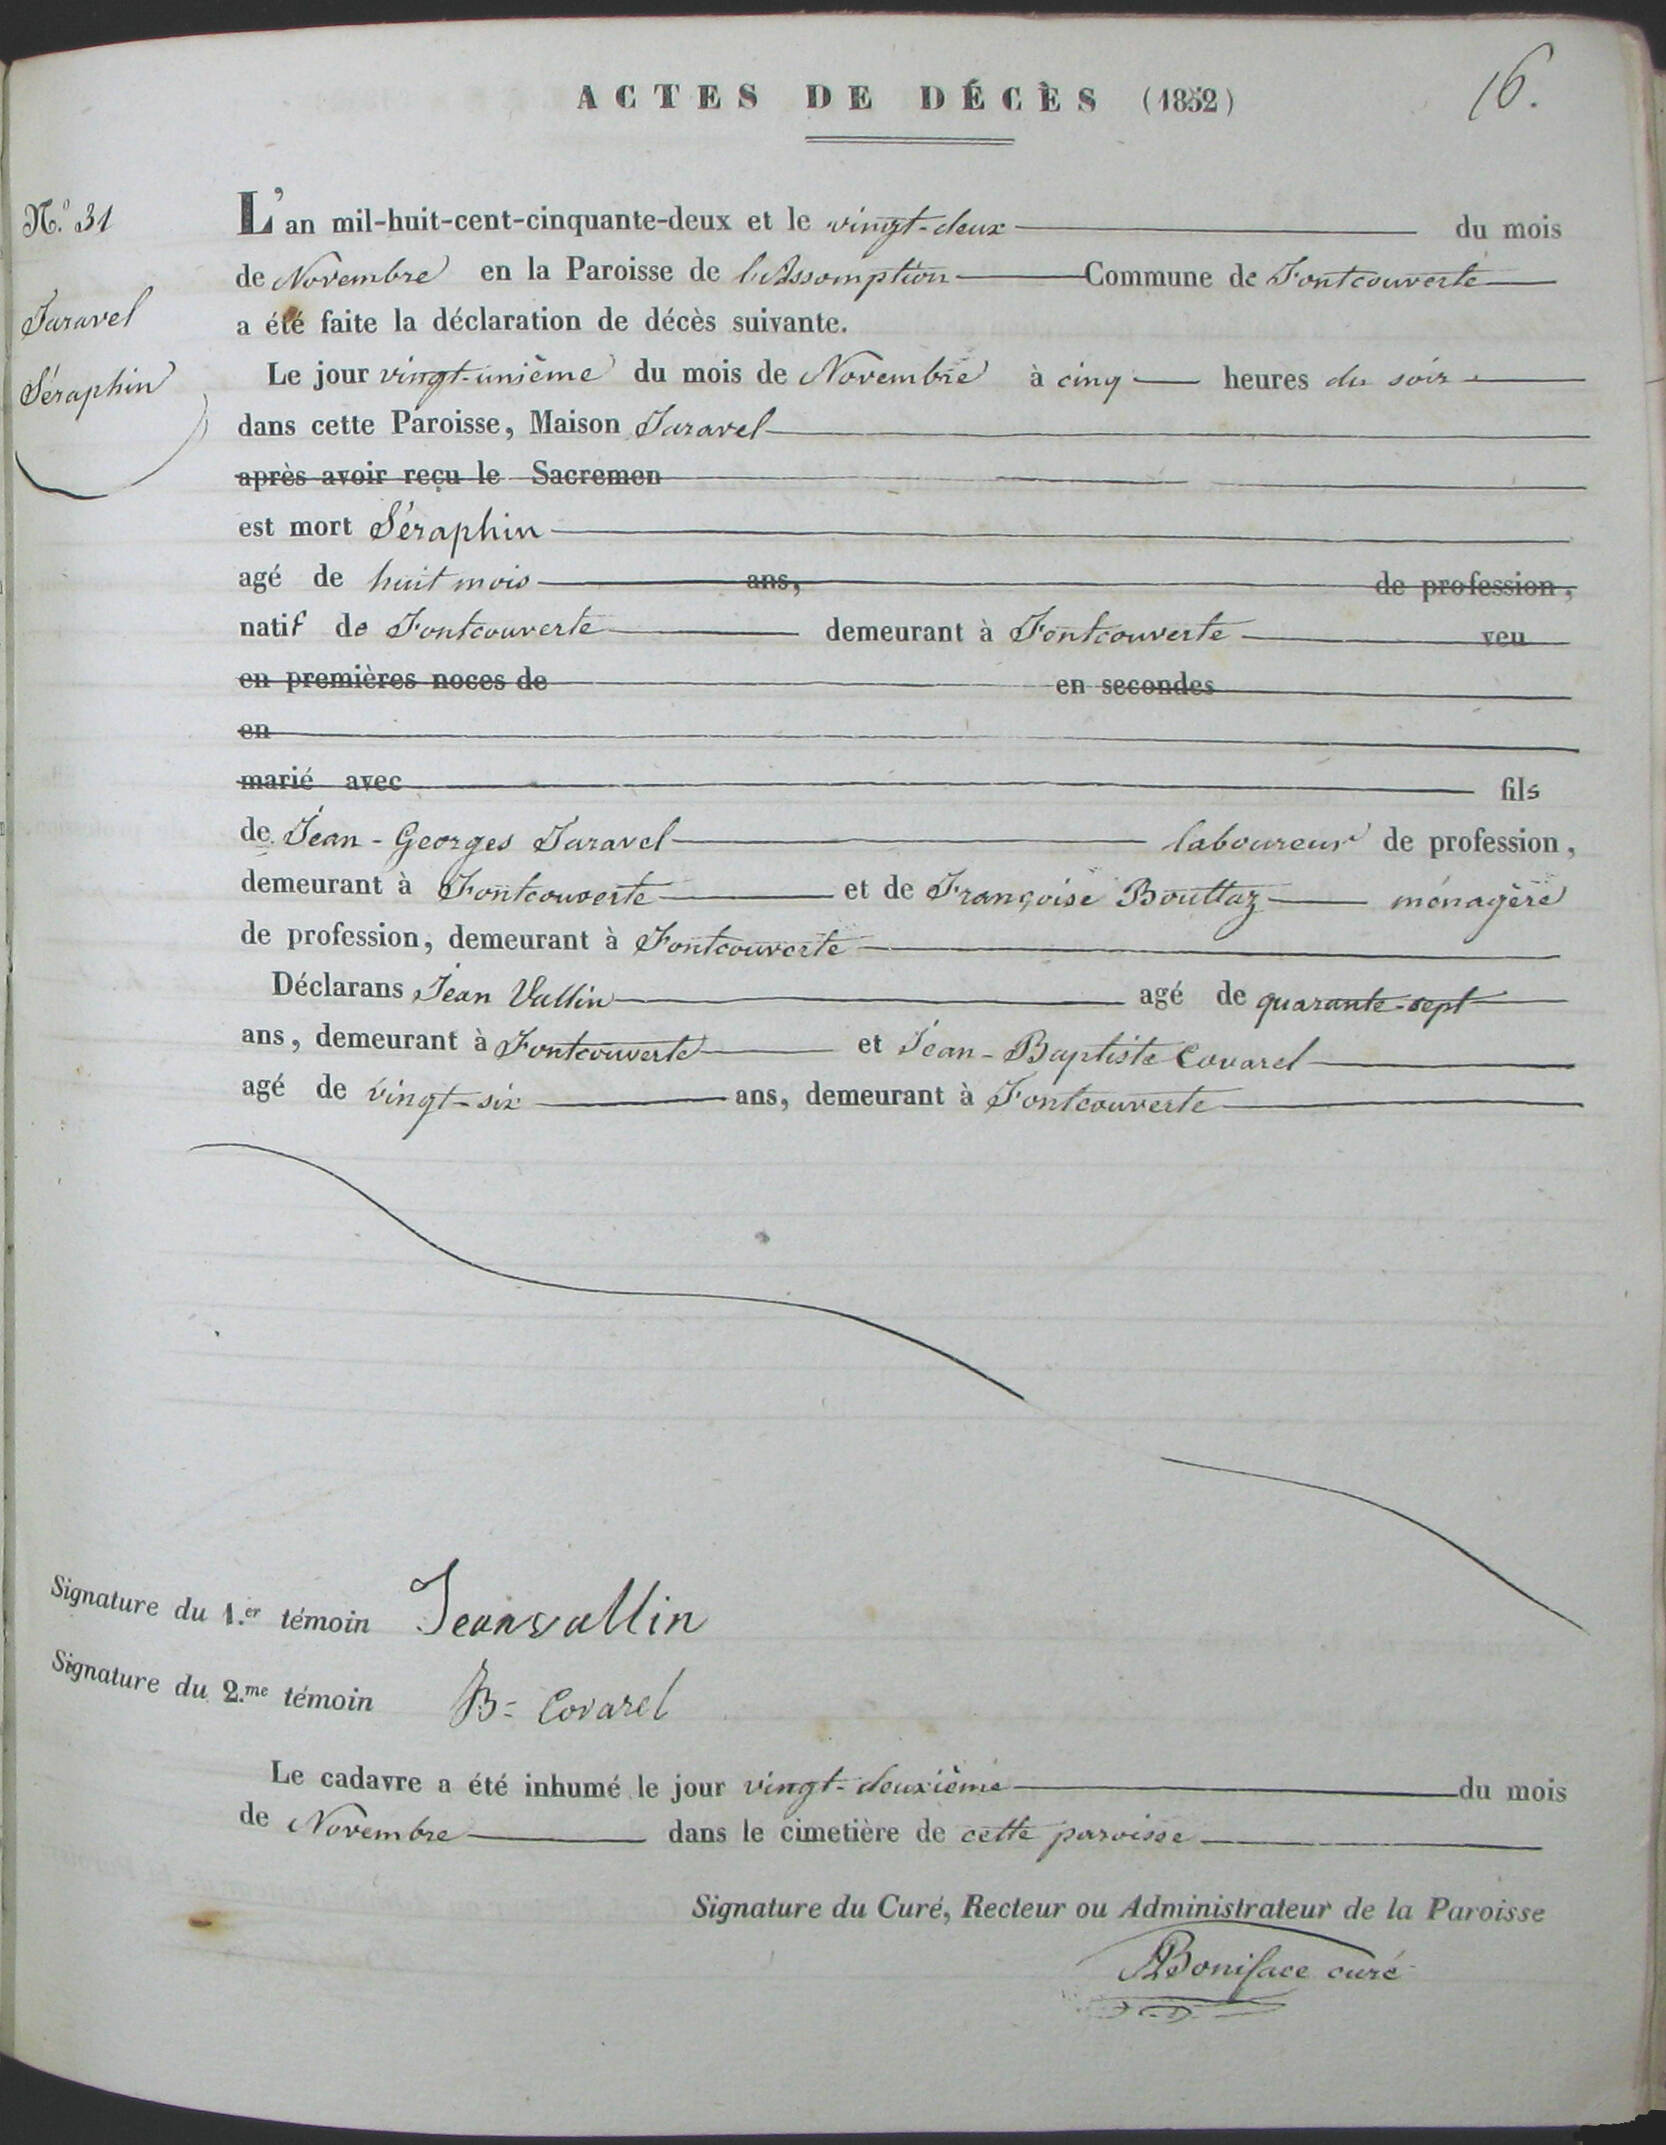 ACTES DE DÉCÈS (1852)
16.
N.º 31
Taravel
Séraphin
L'an mil-huit-cent-cinquante-deux et le vingt-deux du mois
de Novembre en la Paroisse de l'Assomption Commune de Fontcouverte
a été faite la déclaration de décès suivante.
Le jour vingt-unième du mois de Novembre à cinq heures du soir
dans cette Paroisse, Maison Taravel
après avoir reçu le Sacremen
est mort Séraphin
agé de huit mois ans, de profession,
natif de Fontcouverte demeurant à Fontcouverte veu
en premières noces de en secondes
en
marié avec fils
de Jean-Georges Taravel laboureur de profession,
demeurant à Fontcouverte et de Françoise Bouttaz ménagère
de profession, demeurant à Fontcouverte
Déclarans Jean Vallin agé de quarante-sept
ans, demeurant à Fontcouverte et Jean-Baptiste Covarel
agé de vingt-six ans, demeurant à Fontcouverte
Signature du 1.er témoin Jean vallin
Signature du 2.me témoin B= Covarel
Le cadavre a été inhumé le jour vingt-deuxième du mois
de Novembre dans le cimetière de cette paroisse
Signature du Curé, Recteur ou Administrateur de la Paroisse
Boniface curé